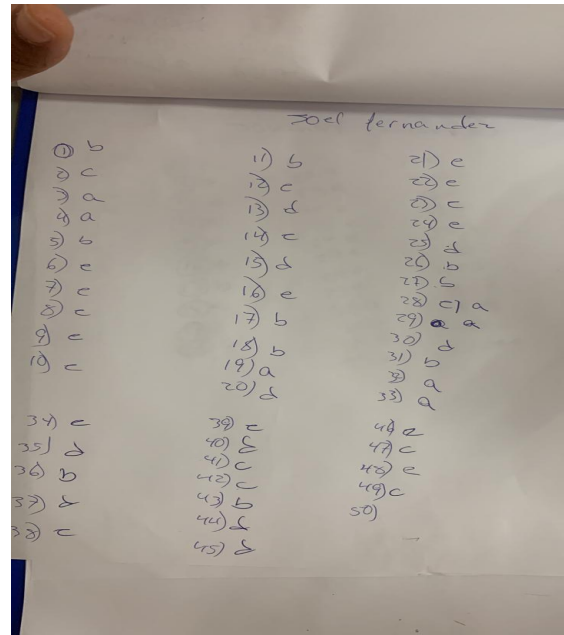 Joel fernandez
1) b
2) c
3) a
4) a
5) b
6) e
7) e
8) c
9) c
10) c
11) b
12) c
13) d
14) c
15) d
16) e
17) b
18) b
19) a
20) d
21) e
22) e
23) c
24) e
25) d
26) b
27) b
28) c) a
29) a
30) d
31) b
32) a
33) a
34) c
35) d
36) b
37) d
38) c
39) c
40) d
41) c
42) c
43) b
44) d
45) d
46) e
47) c
48) e
49) c
50)